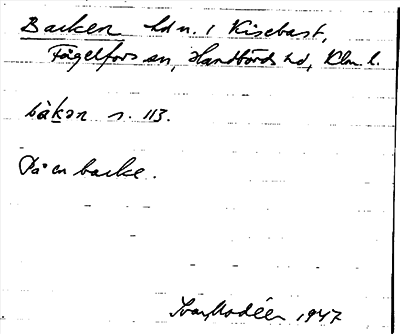 Backen hdn. i Kisebast,
Fågelfors sn, Handbörds hd, Klm l.
bàkən s. 113.
På en backe.
Ivar Modéer 1947